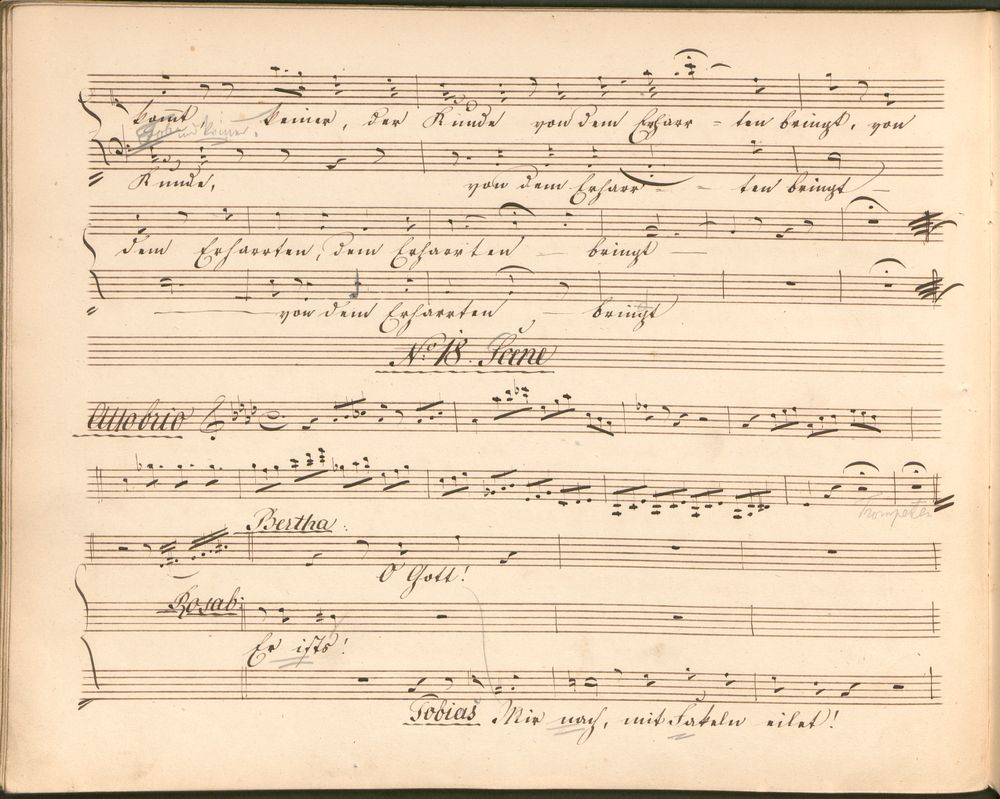 kom̅t keiner, der Kunde von dem Erharr = ten bringt, von
Kunde, von dem Erharr - - ten bringt —
dem Erharrten, dem Erharrten — bringt —
— von dem Erharrten — bringt
No. 18. Scene
Allo brio
Trompeten
Bertha:
O Gott!
Rosab:
Er ists!
Tobias Mir nach, mit Fakeln eilet!